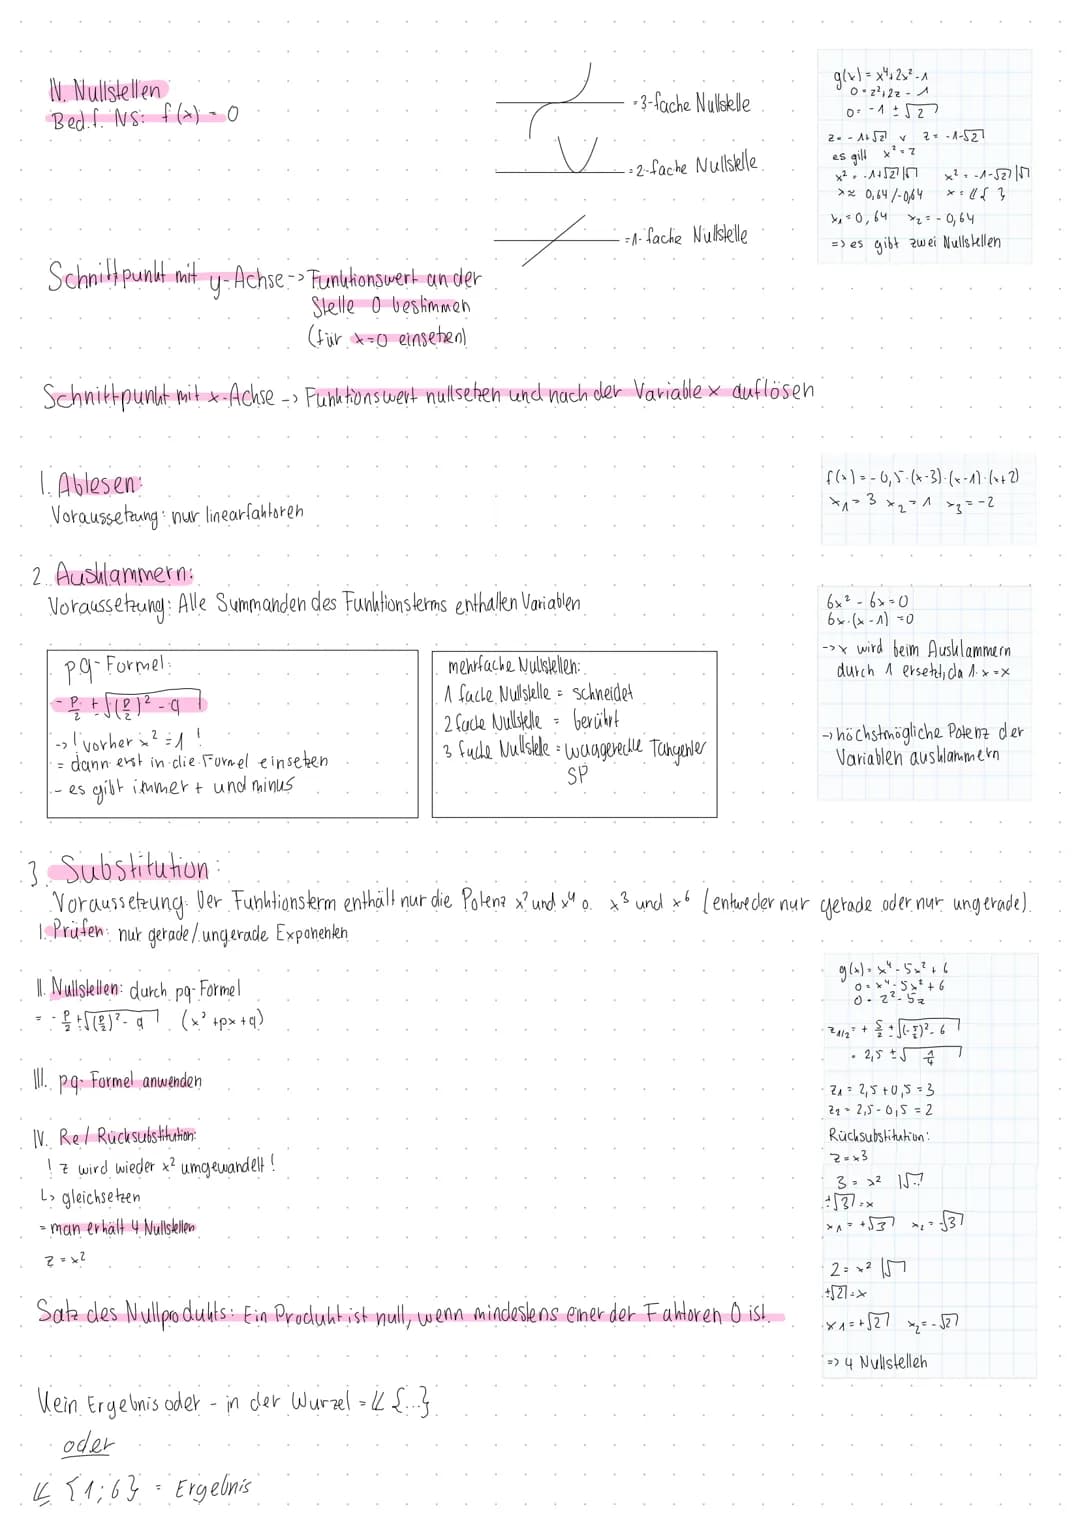 IV. Nullstellen
Bed. f. NS: f(x) = 0
= 3-fache Nullstelle
= 2-fache Nullstelle
= 1-fache Nullstelle
g(x) = x⁴+2x²-1
0 = z²+2z-1
0 = -1 ± √2
z = -1+√2 v z = -1-√2
es gilt x² = z
x² = -1+√2 |√ x² = -1-√2 |√
x ≈ 0,64/-0,64 x = 𝕃{ }
x₁ = 0,64 x₂ = -0,64
=> es gibt zwei Nullstellen
Schnittpunkt mit y-Achse -> Funktionswert an der
Stelle 0 bestimmen
(für x=0 einsetzen)
Schnittpunkt mit x-Achse -> Funktionswert nullsetzen und nach der Variable x auflösen
1. Ablesen:
Voraussetzung: nur linearfaktoren
f(x) = -0,5·(x-3)·(x-1)·(x+2)
x₁ = 3 x₂ = 1 x₃ = -2
2. Ausklammern:
Voraussetzung: Alle Summanden des Funktionsterms enthalten Variablen
6x² - 6x = 0
6x·(x-1) = 0
-> x wird beim Ausklammern
durch 1 ersetzt, da 1·x=x
-> höchstmögliche Potenz der
Variablen ausklammern
pq-Formel:
-p/2 ± √(p/2)² - q
-> ! vorher x² = 1 !
= dann erst in die Formel einsetzen
- es gibt immer + und minus
mehrfache Nullstellen:
1 fache Nullstelle = schneidet
2 fache Nullstelle = berührt
3 fache Nullstelle = waagerechte Tangenter
SP
3. Substitution:
Voraussetzung: Der Funktionsterm enthält nur die Potenz x² und x⁴ o. x³ und x⁶ (entweder nur gerade oder nur ungerade).
I. Prüfen: nur gerade/ungerade Exponenten
II. Nullstellen: durch pq-Formel
= -p/2 ± √(p/2)² - q (x² + px + q)
III. pq-Formel anwenden
IV. Re/Rücksubstitution:
! z wird wieder x² umgewandelt !
↳ gleichsetzen
= man erhält 4 Nullstellen
z = x²
g(x) = x⁴ - 5x² + 6
0 = x⁴ - 5x² + 6
0 = z² - 5z
z₁/₂ = + 5/2 ± √(-5/2)² - 6
= 2,5 ± √1/4
z₁ = 2,5 + 0,5 = 3
z₂ = 2,5 - 0,5 = 2
Rücksubstitution:
z = x³
3 = x² |√
±√3 = x
x₁ = +√3 x₂ = -√3
2 = x² |√
±√2 = x
x₁ = +√2 x₂ = -√2
=> 4 Nullstellen
Satz des Nullprodukts: Ein Produkt ist null, wenn mindestens einer der Faktoren 0 ist.
Kein Ergebnis oder - in der Wurzel = 𝕃 {...}
oder
𝕃 {1;6} = Ergebnis